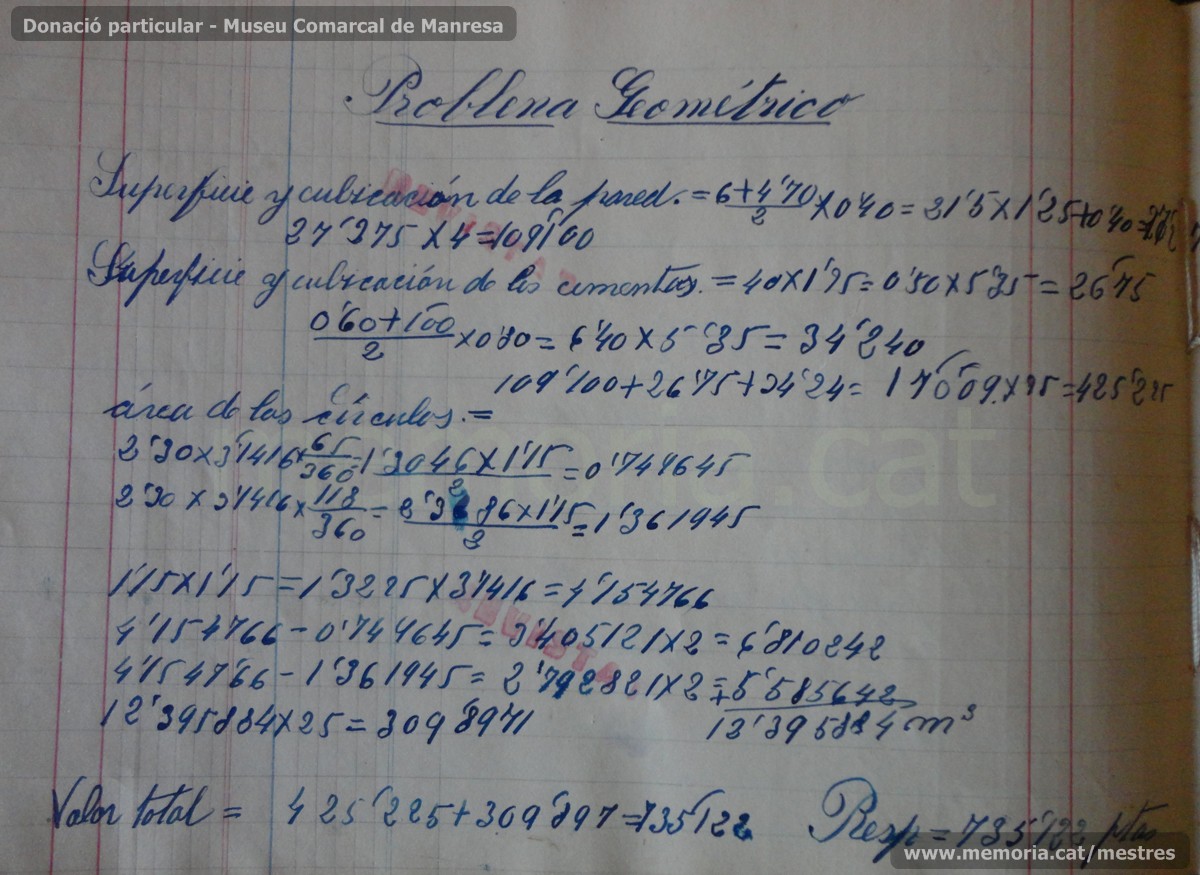 Donació particular - Museu Comarcal de Manresa
Problema Geométrico
Superficie y cubicación de la pared. = 6+4'70/2 × 0'40 = 21'5 × 1'25 + 0'40 =
27'275 × 4 = 109'100
Superficie y cubicación de los cimentos. = 40 × 1'25 = 0'50 × 5'35 = 26'75
0'60+1'00/2 × 0'80 = 6'40 × 5'35 = 34'240
109'100 + 26'75 + 34'24 = 170'09 × 25 = 425'225
área de los círculos. =
2'30 × 3'1416 × 65/360 = 1'3046 × 1'15/2 = 0'744645
2'30 × 3'1416 × 118/360 = 2'3686 × 1'15/2 = 1'361945
1'15 × 1'15 = 1'3225 × 3'1416 = 4'154766
4'154766 - 0'744645 = 3'405121 × 2 = 6'810242
4'154766 - 1'361945 = 2'792821 × 2 = + 5'585642
12'395884 × 25 = 309'8971 12'395884 m³
Valor total = 425'225 + 309'897 = 735'122 Resp = 735'122 ptas
memoria.cat
www.memoria.cat/mestres